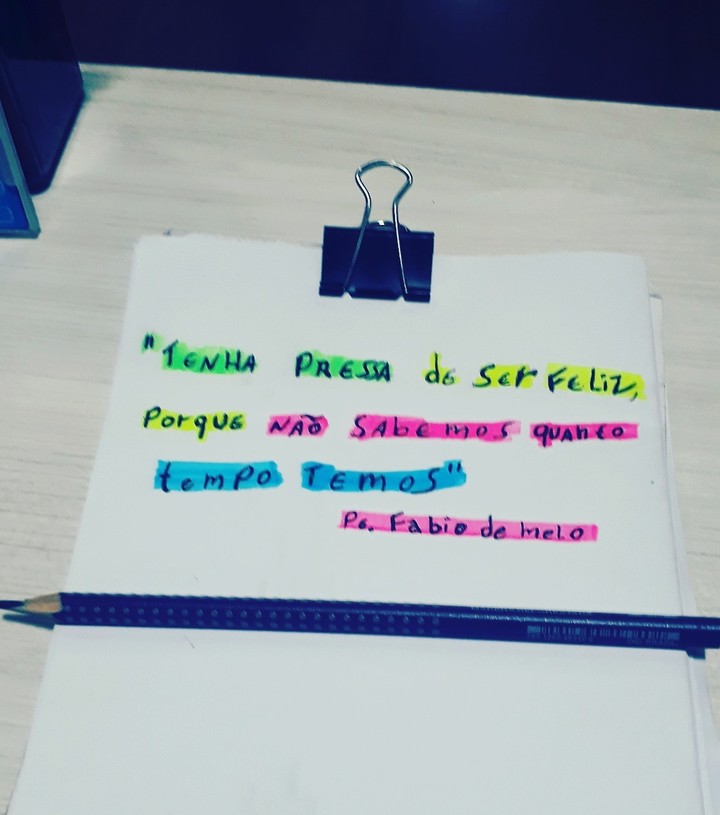 "TENHA PRESSA de Ser FeLiZ,
Porque NÃO SAbemos quanto
tempo Temos"
Pe. Fabio de melo